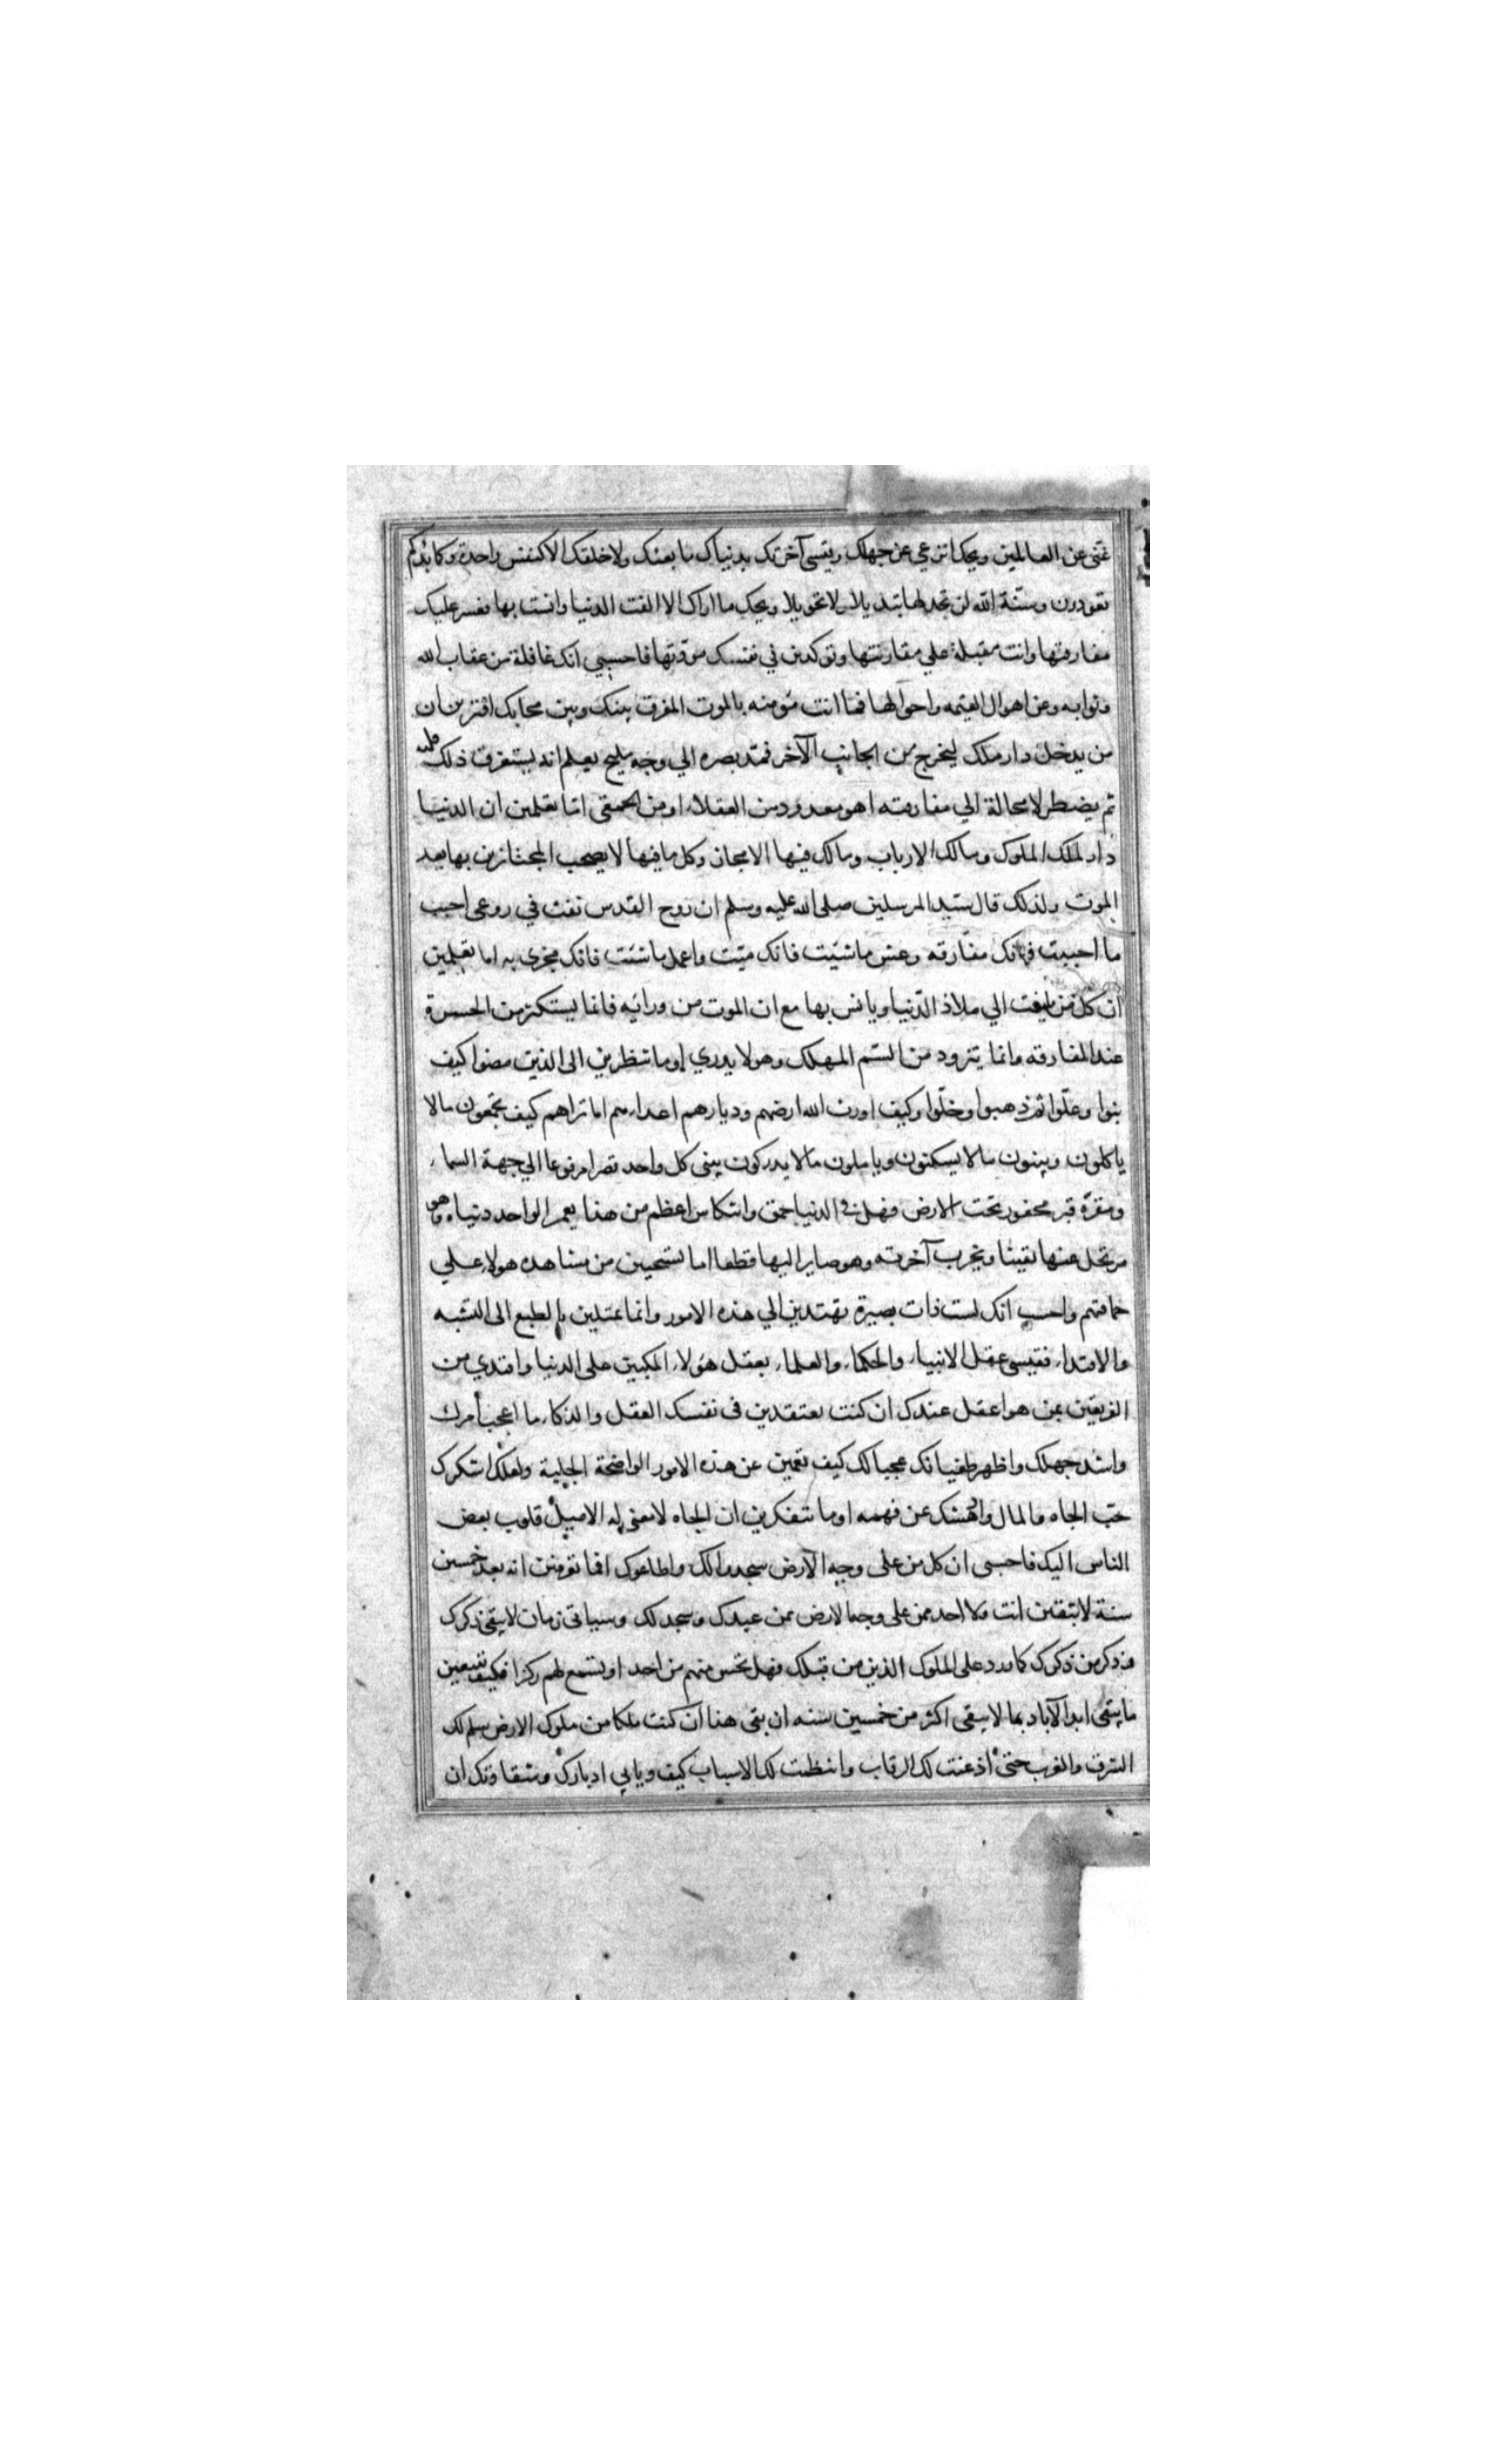 غنى عن العالمين ويحك انزعي عن جهلك وقيسي آخرتك بدنياك ما بعثك ولا خلقك الا كنفس واحدة وكما بدأكم
تعودون وسنّة الله لن تجد لها تبديلا ولا تحويلا ويحك ما اراك الا الفت الدنيا وانست بها فعسر عليك
مفارقتها وانت مقبلة علي مقاربتها وتوكدين في نفسك مودتها فاحسبي انك غافلة من عقاب الله
وثوابه وعن اهوال القيمه واحوالها فما انت مؤمنه بالموت المفرق بينك وبين محابك افترين ان
من يدخل دار ملك ليخرج من الجانب الآخر فمد بصره الي وجه مليح يعلم انه يستغرق ذلك قلبه
ثم يضطر لا محالة الي مفارقته اهو معدود من العقلاء او من الحمقى اما تعلمين ان الدنيا
دار لملك الملوك ومالك الارباب ومالك فيها الا مجاز وكل ما فيها لا يصحب المجتازين بها بعد
الموت ولذلك قال سيد المرسلين صلى الله عليه وسلم ان روح القدس نفث في روعى احبب
ما احببت فانك مفارقه وعش ما شئت فانك ميّت واعمل ما شئت فانك مجزى به اما تعلمين
ان كل من يلتفت الي ملاذ الدّنيا ويانس بها مع ان الموت من ورائه فانما يستكثر من الحسرة
عند المفارقه وانما يتزود من السّم المهلك وهو لا يدري اوما تنظرين الى الذين مضوا كيف
بنوا وعلّوا ثم ذهبوا وخلّوا وكيف اورث الله ارضهم وديارهم اعداءهم اما تراهم كيف يجمعون مالا
ياكلون ويبنون مالا يسكنون ويأملون مالا يدركون يبنى كل واحد قصرا مرفوعا الي جهة السماء
ومقرّه قبر محفور تحت الارض فهل في الدنيا حمق وانتكاس اعظم من هذا يعمر الواحد دنياه وهو
مرتحل عنها يقينا ويخرب آخرته وهو صاير اليها قطعا اما تستحيين من مشاهده هولاء علي
حماقتهم واحسب انك لست ذات بصيرة تهتدين الي هذه الامور وانما تميلين بالطبع الى التشبه
والاقتداء فقيسى عقل الانبياء والحكماء والعلماء بعقل هؤلاء المكبين على الدنيا واقتدي من
الفريقين بمن هو اعقل عندك ان كنت تعتقدين فى نفسك العقل والذكاء ما اعجب أمرك
واشد جهلك واظهر طغيانك عجبا لك كيف تعمين عن هذه الامور الواضحة الجلية ولعلك اسكرك
حبّ الجاه والمال وادهشك عن فهمه اوما تتفكرين ان الجاه لا معنى له الا ميل قلوب بعض
الناس اليك فاحسبى ان كل من على وجه الارض سجدوا لك واطاعوك افما تعرفين انه بعد خمسين
سنة لا تبقين انت ولا احد ممن على وجه الارض ممن عبدك وسجد لك وسياتى زمان لا يبقى ذكرك
وذكر من ذكرك كما ورد على الملوك الذين من قبلك فهل تحس منهم من احد او تسمع لهم ركزا فكيف تبيعين
ما يبقى ابد الآباد بما لا يبقى اكثر من خمسين سنه ان بقى هذا ان كنت ملكا من ملوك الارض سلم لك
الشرق والغرب حتى أذعنت لك الرقاب وانتظمت لك الاسباب كيف ويابي ادبارك وشقاوتك ان